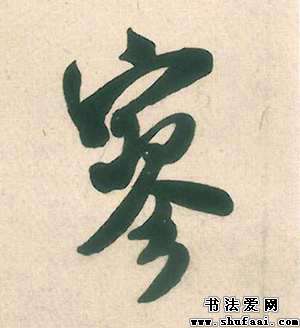 寥
书法爱网
www.shufaai.com